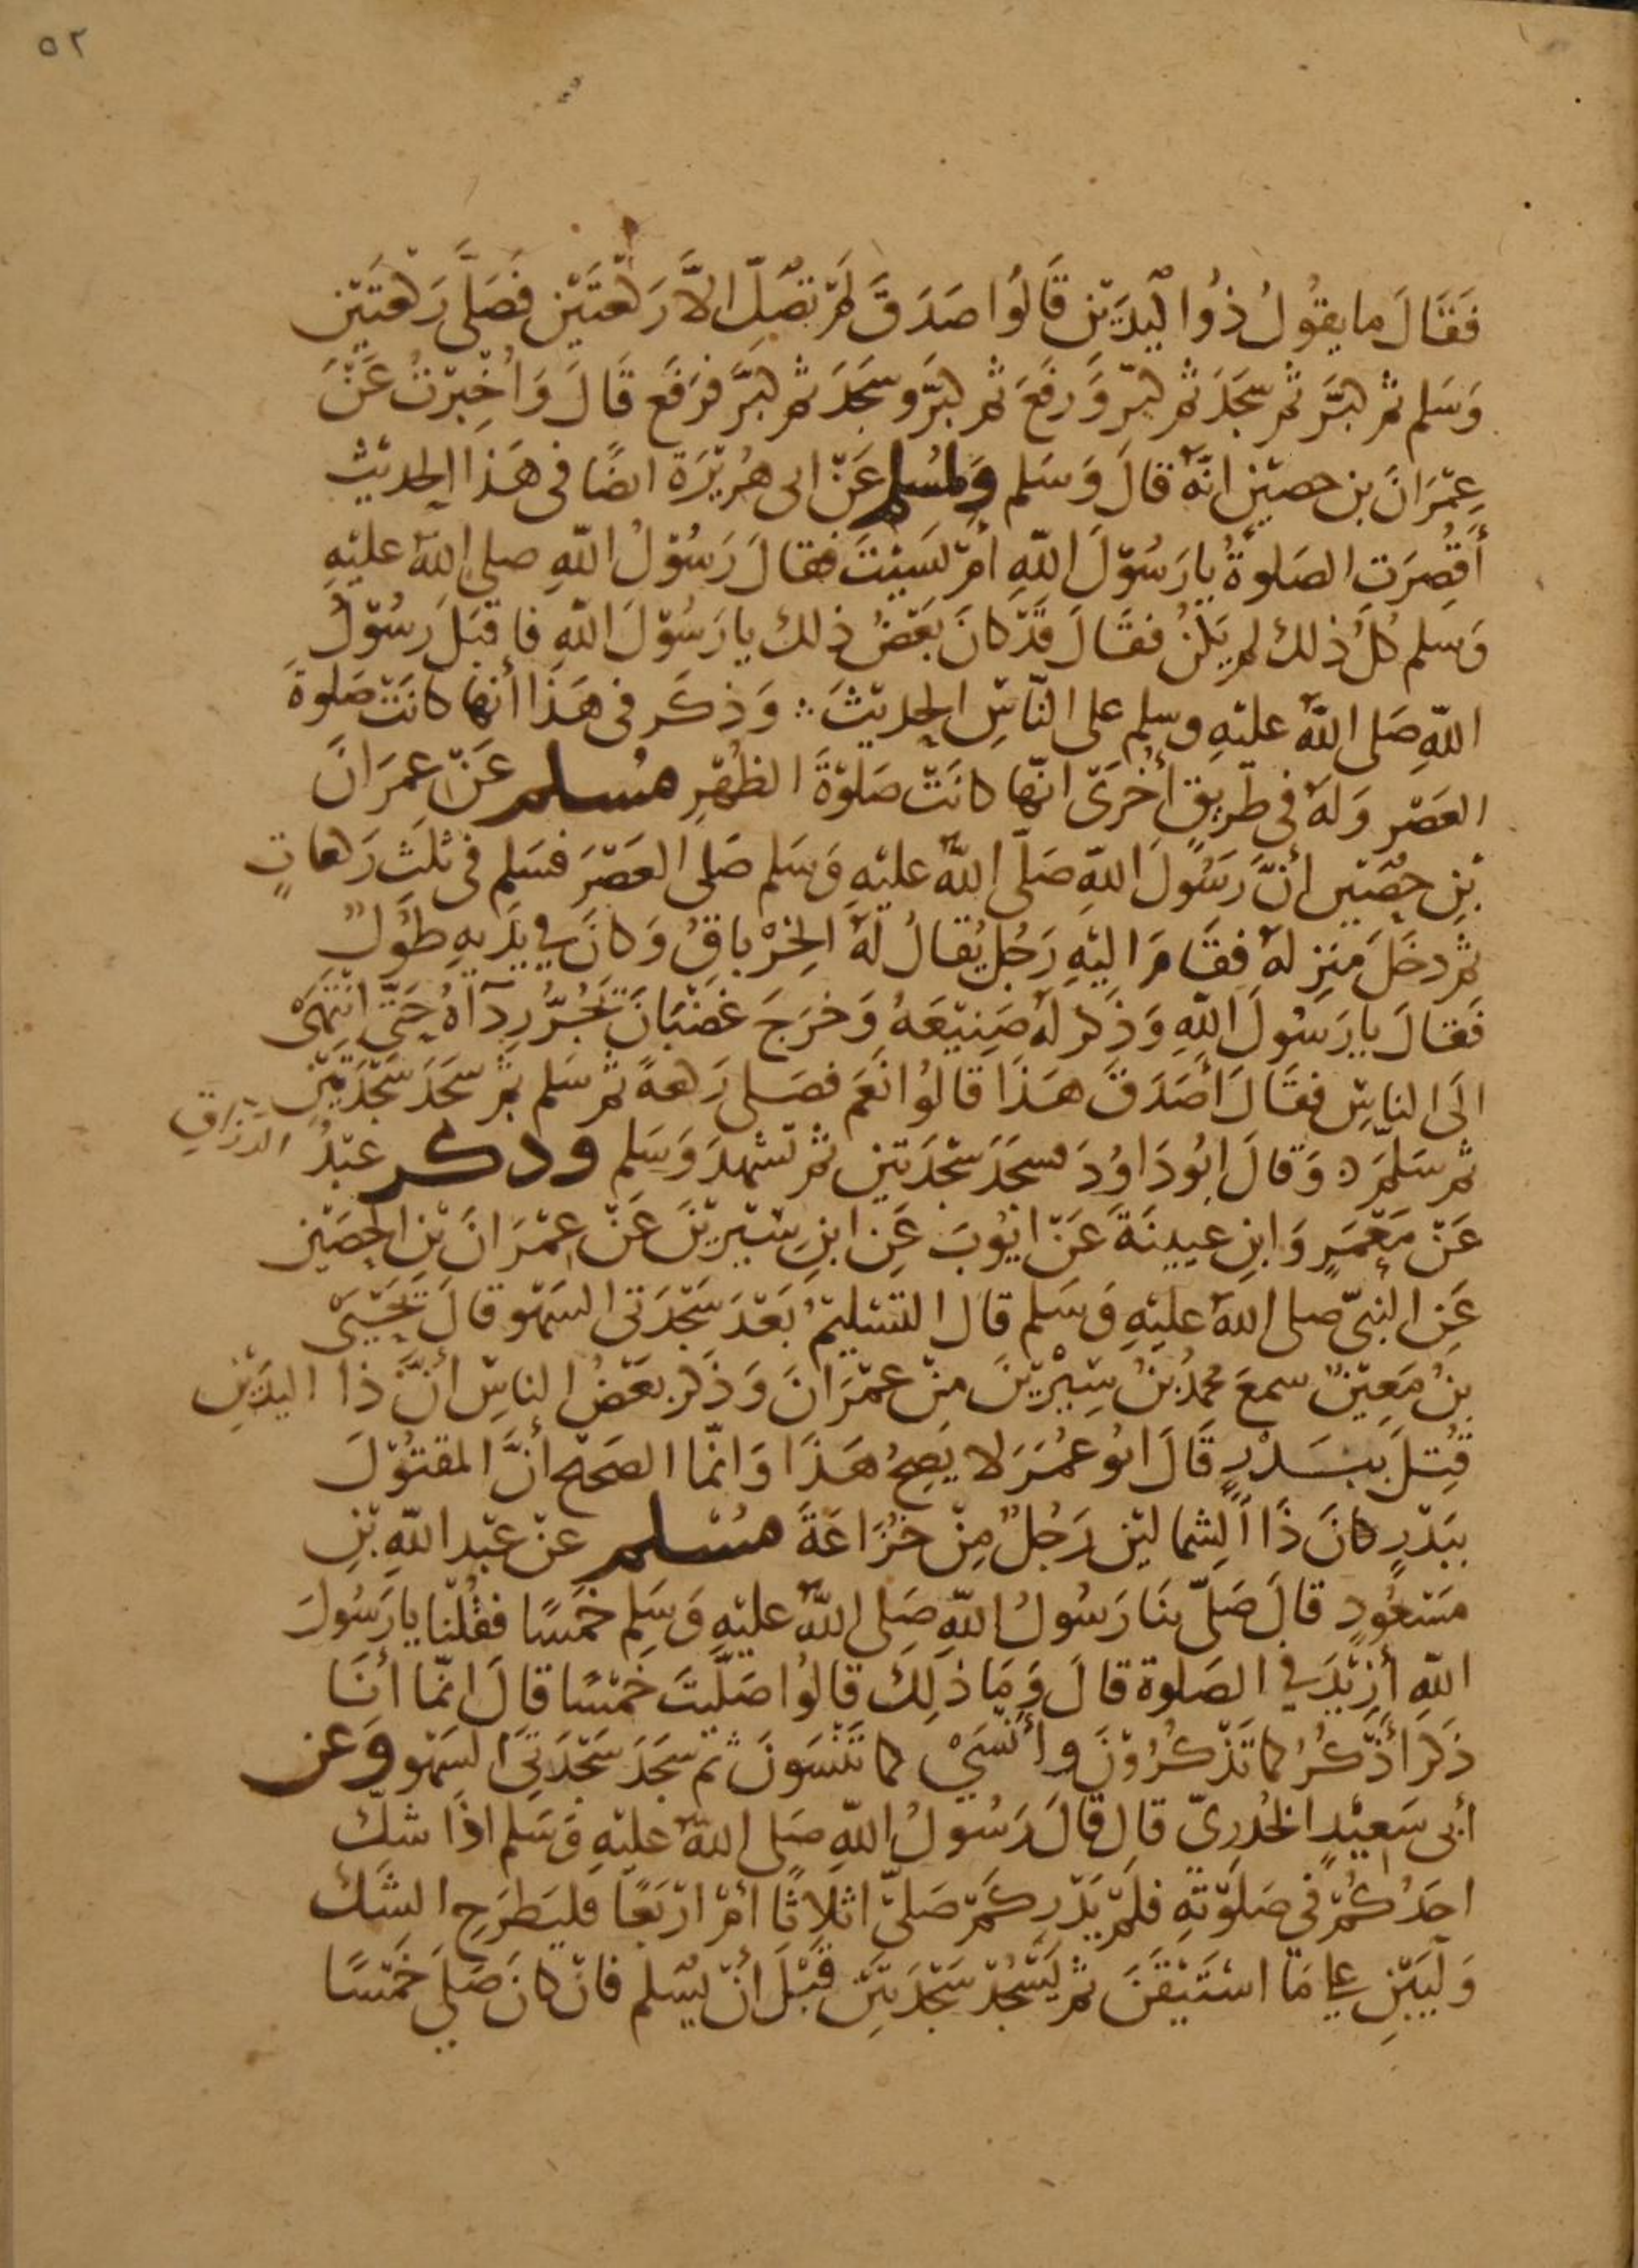 ٥٢
فَقَالَ ما يقُولُ ذُوا ليَدَيْنِ قَالُوا صَدَقَ لَمْ تصَلِّ الاَّ رَكْعَتَيْنِ فَصَلَّى رَكْعَتَيْنِ
وَسَلم ثم كبَّر ثم سَجَدَ ثم كبّر وَرفَعَ ثم كبّر وسَجَدَ ثم كبَّر فرَفَع قَالَ وَاُخْبِرْتُ عَنْ
عِمْرَانَ بن حصيْنٍ انّهُ قالَ وَسَلم وَلمُسلم عَنْ ابى هُرَيْرَة ايضًا فى هَذا الحديْثِ
أَقُصِرَتِ الصَلوةُ يا رَسُوْلَ اللّهِ أمْ نَسِيْتَ فقالَ رَسُوْلُ اللّهِ صلى اللهُ عليْهِ
وَسَلم كُلُ ذلك لم يَكُنْ فقَالَ قَدْ كانَ بَعْضُ ذلك يا رَسُوْلَ اللّهِ فاقبَلَ رسُوْلُ
اللّهِ صَلى اللّهُ عليْهِ وسلم على النّاسِ الحديْثَ ∴ وَذكَر فى هَذَا أنها كانَتْ صَلوةَ
العَصْرِ وَلهُ فى طَريقٍ أُخْرَى انّها كانَتْ صَلوْةَ الظُهْرِ مُسلم عَنْ عِمرَانَ
بْنِ حصَيْنٍ أنَّ رَسُولَ اللّهِ صَلّى اللّهُ عليْهِ وَسَلم صَلى العَصْرَ فسَلم فى ثلثِ رَكعاتٍ
ثم دخَلَ مَنزِلهُ فقَامَ اليْهِ رَجُل يُقالُ لهُ الخِرْباقُ وَكانَ في يَدَيهِ طُوْلٌ
فَقالَ يا رَسُولَ اللّهِ وَذكر لهُ صَنِيْعَهُ وَخرَجَ غضْبَانَ يَجُرُّ رِدَآءَهُ حَتّى انتَهَى
الَى الناسِ فقَالَ أَصَدَقَ هَذَا قالُوا نَعَم فصَلى رَكعةً ثم سَلم ثم سَجَدَ سَجْدَتَيْنِ
ثم سَلمَ ٥ وَقالَ ابُو دَاوُدَ فسَجَدَ سَجْدَتَيْنِ ثم تَشهدَ وَسَلم وذكر عبْدُ الرزاقِ
عَنْ مَعْمَرٍ وَابنِ عيينَةَ عَنْ ايوُبَ عَنِ ابنِ سِيْرِيْنَ عَنْ عِمْرَانَ بْنِ الحصَيْنِ
عَنِ النبِيّ صلى اللهُ عليْهِ وَسَلم قال التسْليْمُ بَعْدَ سَجْدَتى السَهْوِ قالَ يَحْيَى
بنُ مَعِيْنٍ سمعَ محمدُ بْنُ سِيْرِيْنَ مِنْ عمْرَانَ وَذَكر بعَضُ الناسِ أنَّ ذا اليدَيْنِ
قُتِلَ ببَدْرٍ قَالَ ابُو عُمَرَ لا يَصِحُ هَذَا وَانّما الصَحيْح أنَّ المقتُوْلَ
ببَدْرٍ كانَ ذَا الشِماليْنِ رَجُلٌ مِنْ خُزَاعَةَ مُسْلم عنْ عَبْد اللّهِ بْنِ
مَسْعُودٍ قالَ صَلّى بنَا رَسُولُ اللّهِ صَلى اللّهُ عليْهِ وَسَلم خَمسًا فقُلْنا يا رَسُولَ
اللّهِ أزِيْدَ في الصَلوة قالَ وَمَا ذلِكَ قالُوا صَلَّيْتَ خَمْسًا قالَ انّما أنَا
ذَكر أذْكُرُ كما تَذْكُرُوْنَ وأنْسَىْ كما تَنْسَونَ ثم سَجَدَ سَجْدَتَيِ السَهْو وَعن
أبى سَعِيْدٍ الخُدرِىّ قالَ قالَ رَسُولُ اللّهِ صَلى اللّهُ عليْهِ وَسَلم اذَا شكّ
احَدُكُمْ فى صَلوْتِهِ فلَمْ يَدْرِ كَمْ صَلىّ اثلاثًا أمْ ارْبَعًا فليَطرَحِ الشَكّ
وَليَبْنِ على مَا اسْتَيْقَنَ ثم ليَسْجُدْ سَجْدَتَيْنِ قبْلَ أنْ يُسَلم فانْ كانَ صَلى خَمْسًا